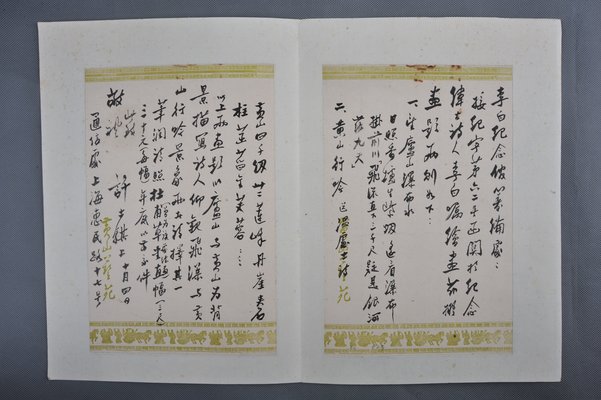 李白纪念馆筹备处:
接纪字第六二号函关于纪念
伟大诗人李白嘱绘画兹拟
画题两则如下:
一、望庐山瀑布
日照香炉生紫烟遥看瀑布
挂前川飞流直下三千尺疑是银河
落九天
二、黄山行吟 送温处士诗
黄山四千仞卅二莲峰丹崖夹石
柱菡萏金芙蓉…
以上两画题以庐山与黄山为背
景描写诗人仰观飞瀑与黄
山行吟景象两者请择其一
笔润请照杜甫草堂直幅
敬礼
许士骐上 十月四日
通信处上海惠民路十七号
黄山艺苑